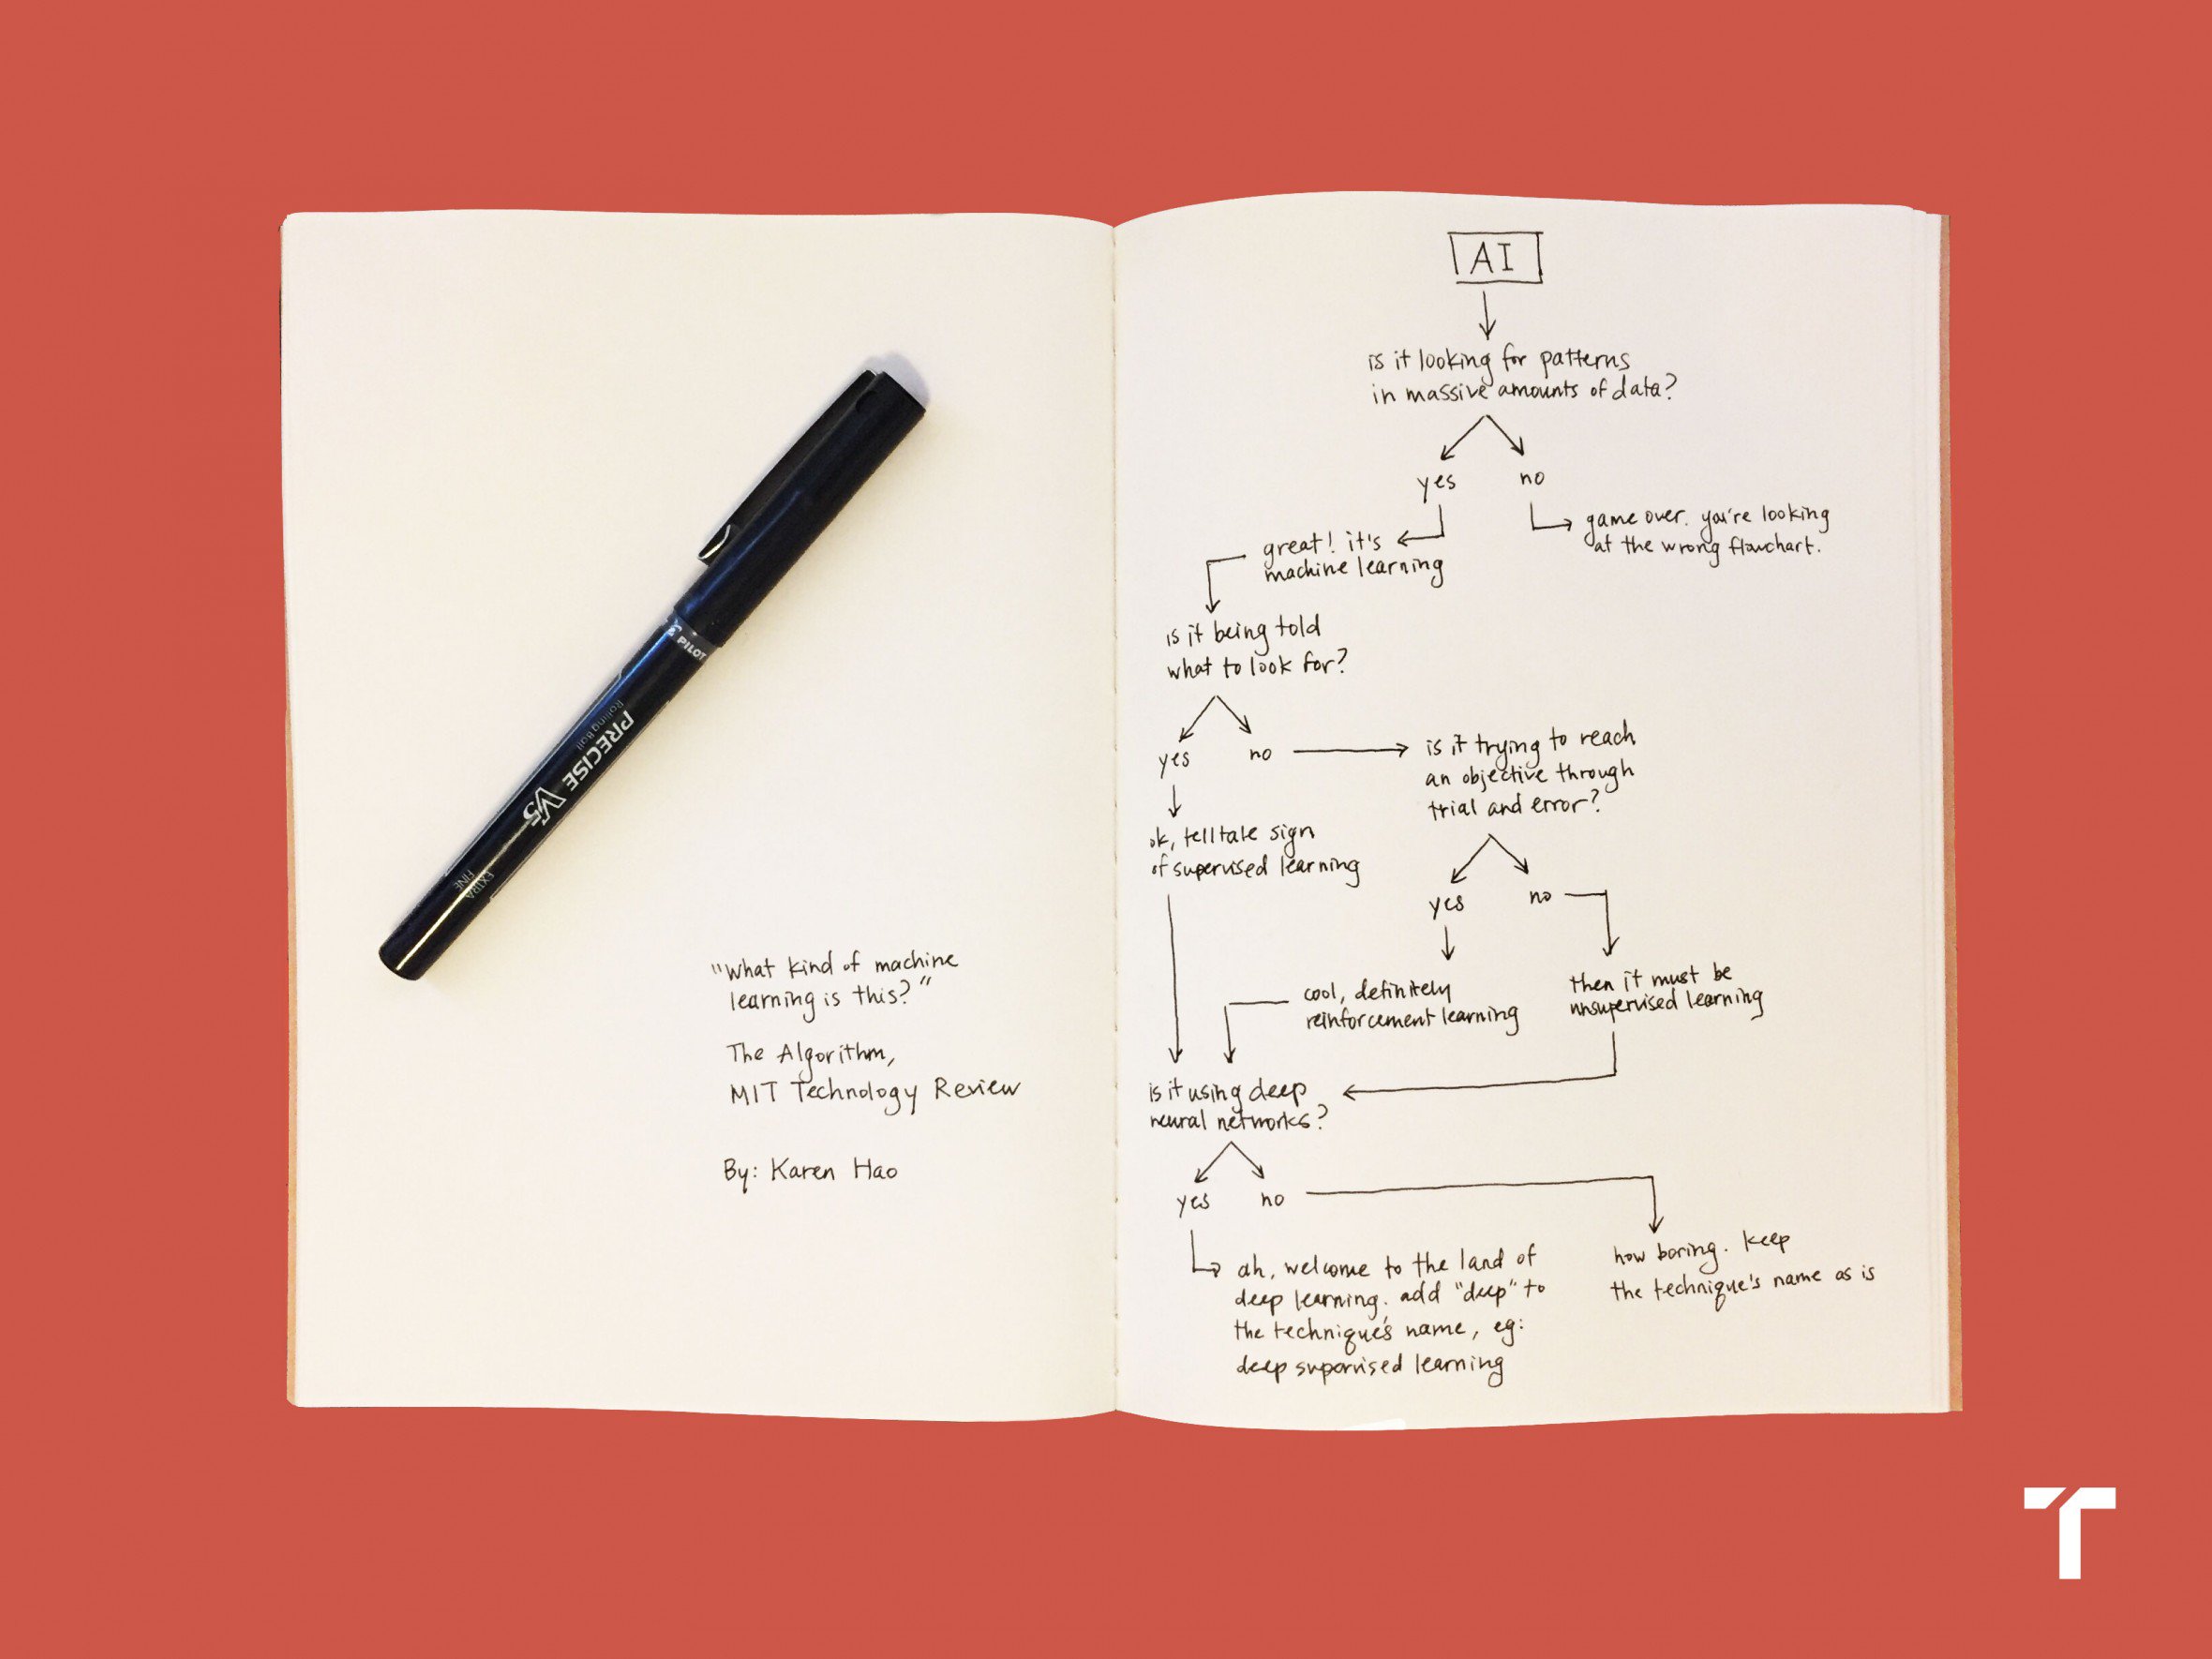 PILOT
PRECISE V5
Rolling Ball
EXTRA
FINE
"What kind of machine
learning is this?"
The Algorithm,
MIT Technology Review
By: Karen Hao
AI
is it looking for patterns
in massive amounts of data?
yes
no
game over. you're looking
at the wrong flowchart.
great! it's
machine learning
is it being told
what to look for?
yes
no
is it trying to reach
an objective through
trial and error?
ok, telltale sign
of supervised learning
yes
no
cool, definitely
reinforcement learning
then it must be
unsupervised learning
is it using deep
neural networks?
yes
no
ah, welcome to the land of
deep learning. add "deep" to
the technique's name, eg:
deep supervised learning
how boring. keep
the technique's name as is
T